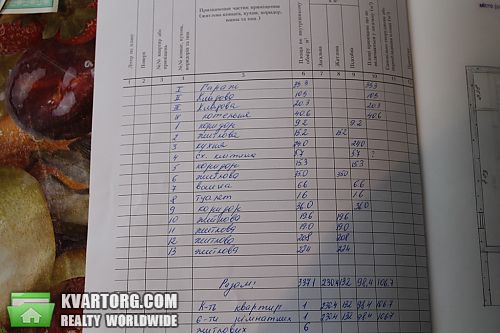 Літер по плану
Поверх
№№ квартир або приміщень
Призначення частин приміщення (житлова кімната, кухня, коридор, ванна та інш.)
1 2 3 4 5 6 7 8 9 10
I Гараж
II Кладова 10.5 10.5
III Кладова 20.3 20.3
IV котельня 40.6 40.6
1 коридор 9.2 9.2
2 житлова 15.2 15.2
3 кухня 24.0 24.0
4 сх. клітина 5.7 5.7
5 коридор 15.3 15.3
6 житлова 35.0 35.0
7 ванна 6.6 6.6
8 туалет 1.6 1.6
9 коридор 36.0 36.0
10 житлова 19.6 19.6
11 житлова 19.0 19.0
12 житлова 20.8 20.8
13 житлова 22.4 22.4
Разом: 337.1 230.4 132 98.4 106.7
К-ть квартир 1 230.4 132 98.4 106.7
6-ти кімнатних 1 230.4 132 98.4 106.7
житлових 6
KVARTORG.COM
REALTY WORLDWIDE